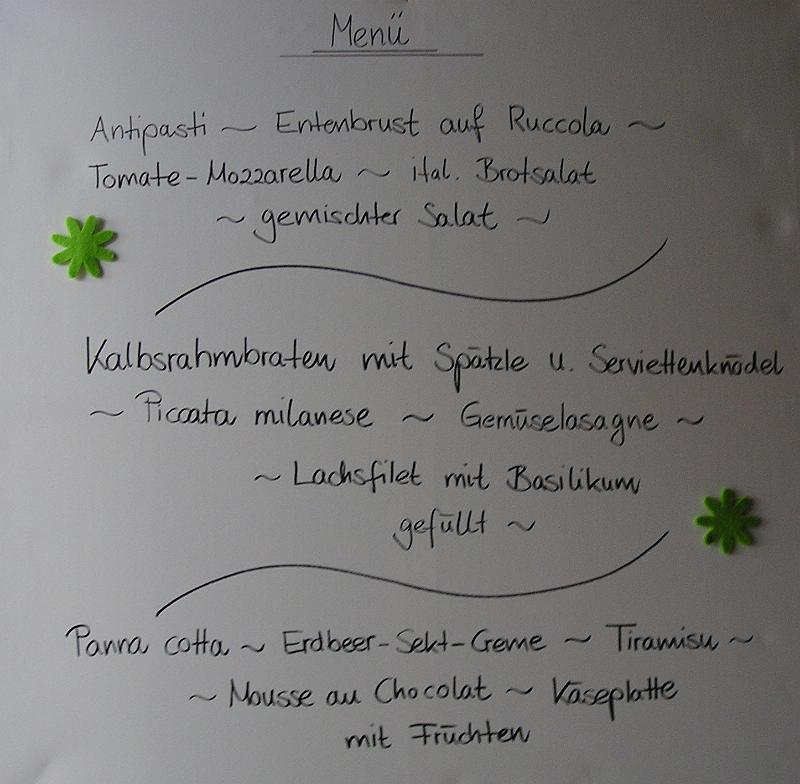 Menü
Antipasti ~ Entenbrust auf Ruccola ~
Tomate-Mozzarella ~ ital. Brotsalat
~ gemischter Salat ~
Kalbsrahmbraten mit Spätzle u. Serviettenknödel
~ Piccata milanese ~ Gemüselasagne ~
~ Lachsfilet mit Basilikum
gefüllt ~
Panna cotta ~ Erdbeer-Sekt-Creme ~ Tiramisu ~
~ Mousse au Chocolat ~ Käseplatte
mit Früchten